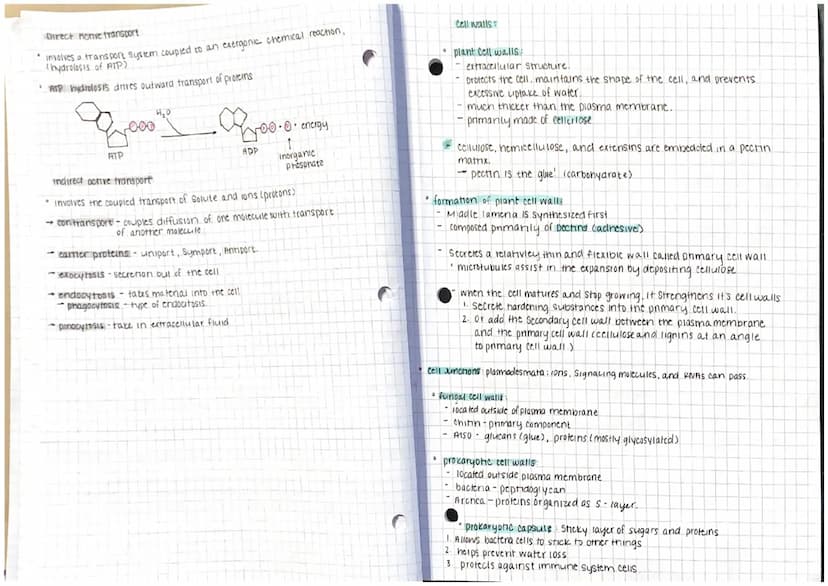 Direct Active transport
• involves a transport system coupled to an exergonic chemical reaction,
(hydrolosis of ATP)
• ATP hydrolosis drives outward transport of proteins
H₂O
P P P
P P + P + energy
ATP
ADP
inorganic
phosphate
indirect active transport
• involves the coupled transport of solute and ions (protons)
→ contransport - couples diffusion of one molecule with transport
of another molecule
→ carrier proteins - uniport, symport, Antiport.
→ exocytosis - secretion out of the cell
→ endocytosis - takes material into the cell
- phagocytosis - type of endocitosis.
→ pinocytosis - take in extracellular fluid
cell walls:
• plant cell walls:
- extracellular structure.
- protects the cell, maintains the shape of the cell, and prevents
excessive uptake of water.
- much thicker than the plasma membrane.
- primarily made of cellulose
* cellulose, hemicellulose, and extensins are embedded in a pectin
matrix.
→ pectin is the 'glue' (carbohydrate)
• formation of plant cell walls
- Middle lamella is synthesized first
- composed primarily of
- secretes a relatively thin and flexible wall called primary cell wall
• microtubules assist in the expansion by depositing cellulose
- when the cell matures and stop growing, it strengthens it's cell walls
1. secrete hardening substances into the primary cell wall.
2. Or add the secondary cell wall between the plasma membrane
and the primary cell wall (cellulose and lignins at an angle
to primary cell wall)
• cell Junctions: plasmodesmata: ions, signaling molecules, and RNAs can pass
• fungal cell walls
- located outside of plasma membrane
- chitin - primary component
- Also - glucans (glue), proteins (mostly glycosylated)
• prokaryotic cell walls
- located outside plasma membrane
- bacteria - peptidoglycan
- Archea - proteins organized as S-layer.
• prokaryotic capsule: sticky layer of sugars and proteins
1. Allows bacteria cells to stick to other things
2. helps prevent water loss
3. protects against immune system cells